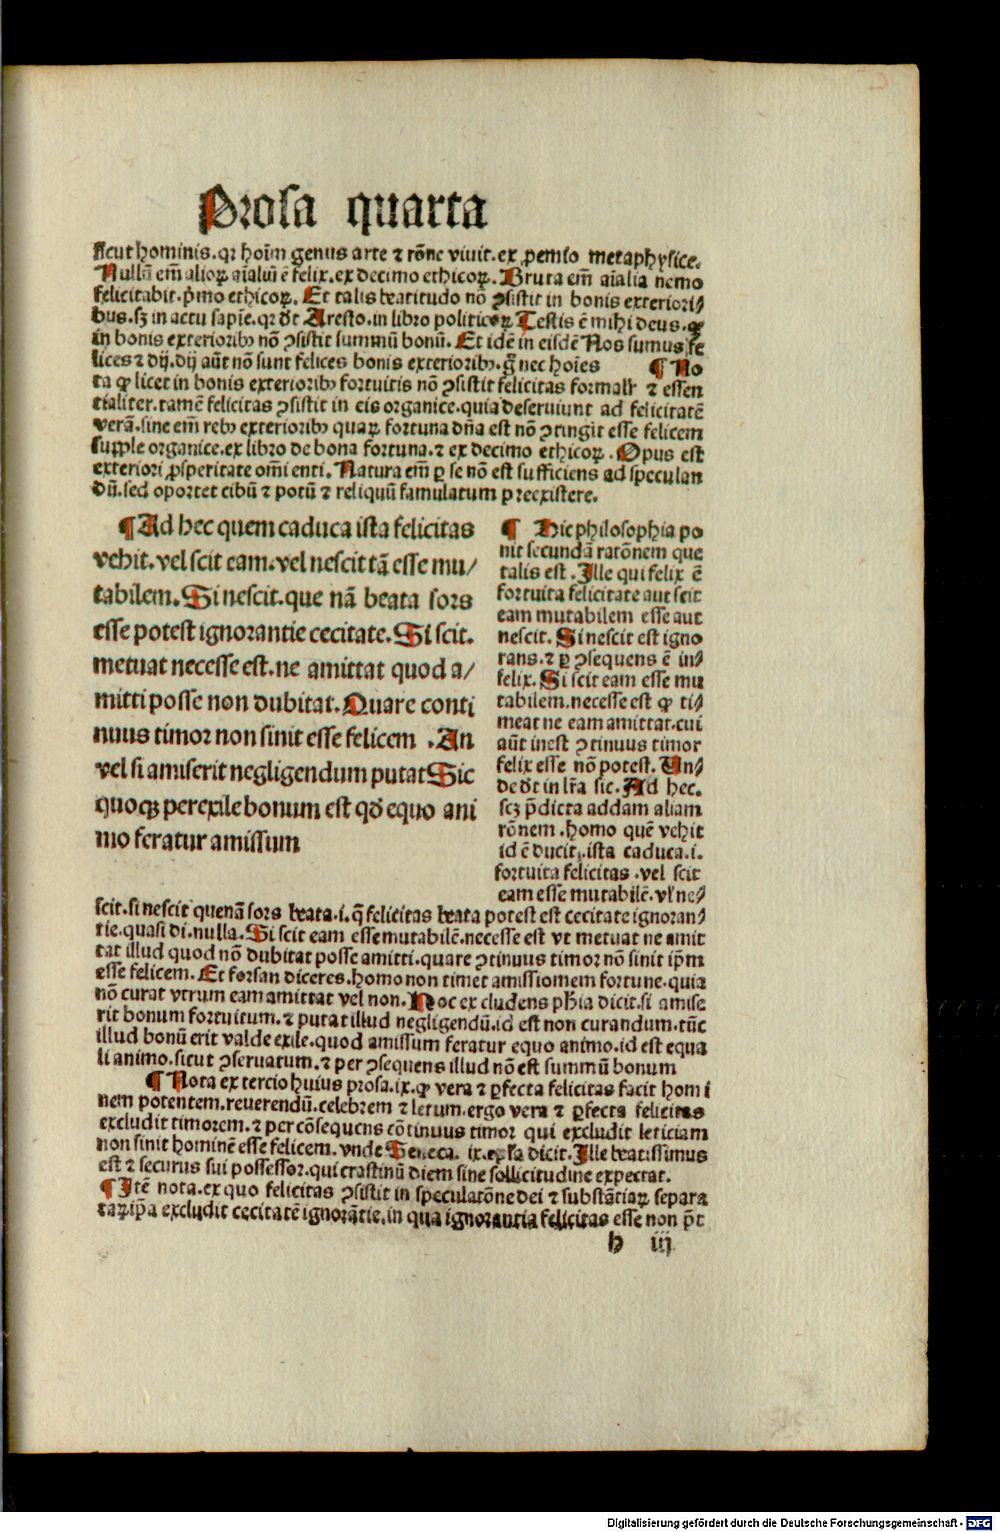 Prosa quarta
sicut hominis. qꝛ hoīm genus arte ⁊ rōne viuit. ex ꝓemio metaphysice.
Nullū em̄ alioꝝ aīaliū ē felix. ex decimo ethicoꝝ. Bruta em̄ aīalia nemo
felicitabit. p̄mo ethicoꝝ. Et talis beatitudo nō ꝯsistit in bonis exteriori⸗
bus. sꝫ in actu sapīe. qꝛ dt̄ Aresto. in libro politicoꝝ Testis ē mihi deus. ꝙ
in bonis exterioribꝰ nō ꝯsistit summū bonū. Et idē in eisdē Nos sumus fe
lices ⁊ dij. dij aūt nō sunt felices bonis exterioribꝰ. ḡ nec hoīes ¶ No
ta ꝙ licet in bonis exterioribꝰ fortuitis nō ꝯsistit felicitas formalr̄ ⁊ essen
tialiter. tamē felicitas ꝯsistit in eis organice. quia deseruiunt ad felicitatē
verā. sine em̄ rebꝰ exterioribꝰ quaꝝ fortuna dn̄a est nō ꝯtingit esse felicem
supple organice. ex libro de bona fortuna. ⁊ ex decimo ethicoꝝ. Opus est
exteriori ꝓsperitate om̄i enti. Natura em̄ ꝑ se nō est sufficiens ad speculan
dū. sed oportet cibū ⁊ potū ⁊ reliquū famulatum preexistere.
¶ Ad hec quem caduca ista felicitas
vehit. vel scit eam. vel nescit tā esse mu/
tabilem. Si nescit. que nā beata sors
esse potest ignorantie cecitate. Si scit.
metuat necesse est. ne amittat quod a/
mitti posse non dubitat. Quare conti
nuus timor non sinit esse felicem. An
vel si amiserit negligendum putat Sic
quoqꝫ perexile bonum est qd̄ equo ani
mo feratur amissum
¶ Hic philosophia po
nit secundā ratōnem que
talis est. Ille qui felix ē
fortuita felicitate aut scit
eam mutabilem esse aut
nescit. Si nescit est igno
rans. ⁊ ꝑ ꝯsequens ē in⸗
felix. Si scit eam esse mu
tabilem. necesse est ꝙ ti⸗
meat ne eam amittat. cui
aūt inest ꝯtinuus timor
felix esse nō potest. Vn⸗
de dt̄ in lr̄a sic. Ad hec.
scꝫ p̄dicta addam aliam
rōnem. homo quē vehit
id ē ducit. ista caduca. i.
fortuita felicitas. vel scit
eam esse mutabilē. vl̄ ne⸗
scit. si nescit quenā sors beata. i. q̄ felicitas beata potest est cecitate ignoran⸗
tie. quasi di. nulla. Si scit eam esse mutabilē. necesse est vt metuat ne amit
tat illud quod nō dubitat posse amitti. quare ꝯtinuus timor nō sinit ip̄m
esse felicem. Et forsan diceres. homo non timet amissiomem fortune. quia
nō curat vtrum eam amittat vel non. Hoc excludens ph̄ia dicit. si amise
rit bonum fortuitum. ⁊ putat illud negligendū. id est non curandum. tūc
illud bonū erit valde exile. quod amissum feratur equo animo. id est equa
li animo. sicut ꝯseruatum. ⁊ per ꝯsequens illud nō est summū bonum
¶ Nota ex tercio huius prosa. ix. ꝙ vera ⁊ ꝑfecta felicitas facit homi
nem potentem. reuerendū. celebrem ⁊ letum. ergo vera ⁊ ꝑfecta felicitas
excludit timorem. ⁊ per cōsequens cōtinuus timor qui excludit leticiam
non sinit hominē esse felicem. vnde Seneca. ix. ep̄la dicit. Ille beatissimus
est ⁊ securus sui possessor. qui crastinū diem sine sollicitudine expectat.
¶ Itē nota. ex quo felicitas ꝯsistit in speculatōne dei ⁊ substātiaꝝ separa
taꝝ ip̄a excludit cecitatē ignorātie. in qua ignorantia felicitas esse non pt̄
h iij
Digitalisierung gefördert durch die Deutsche Forschungsgemeinschaft - DFG